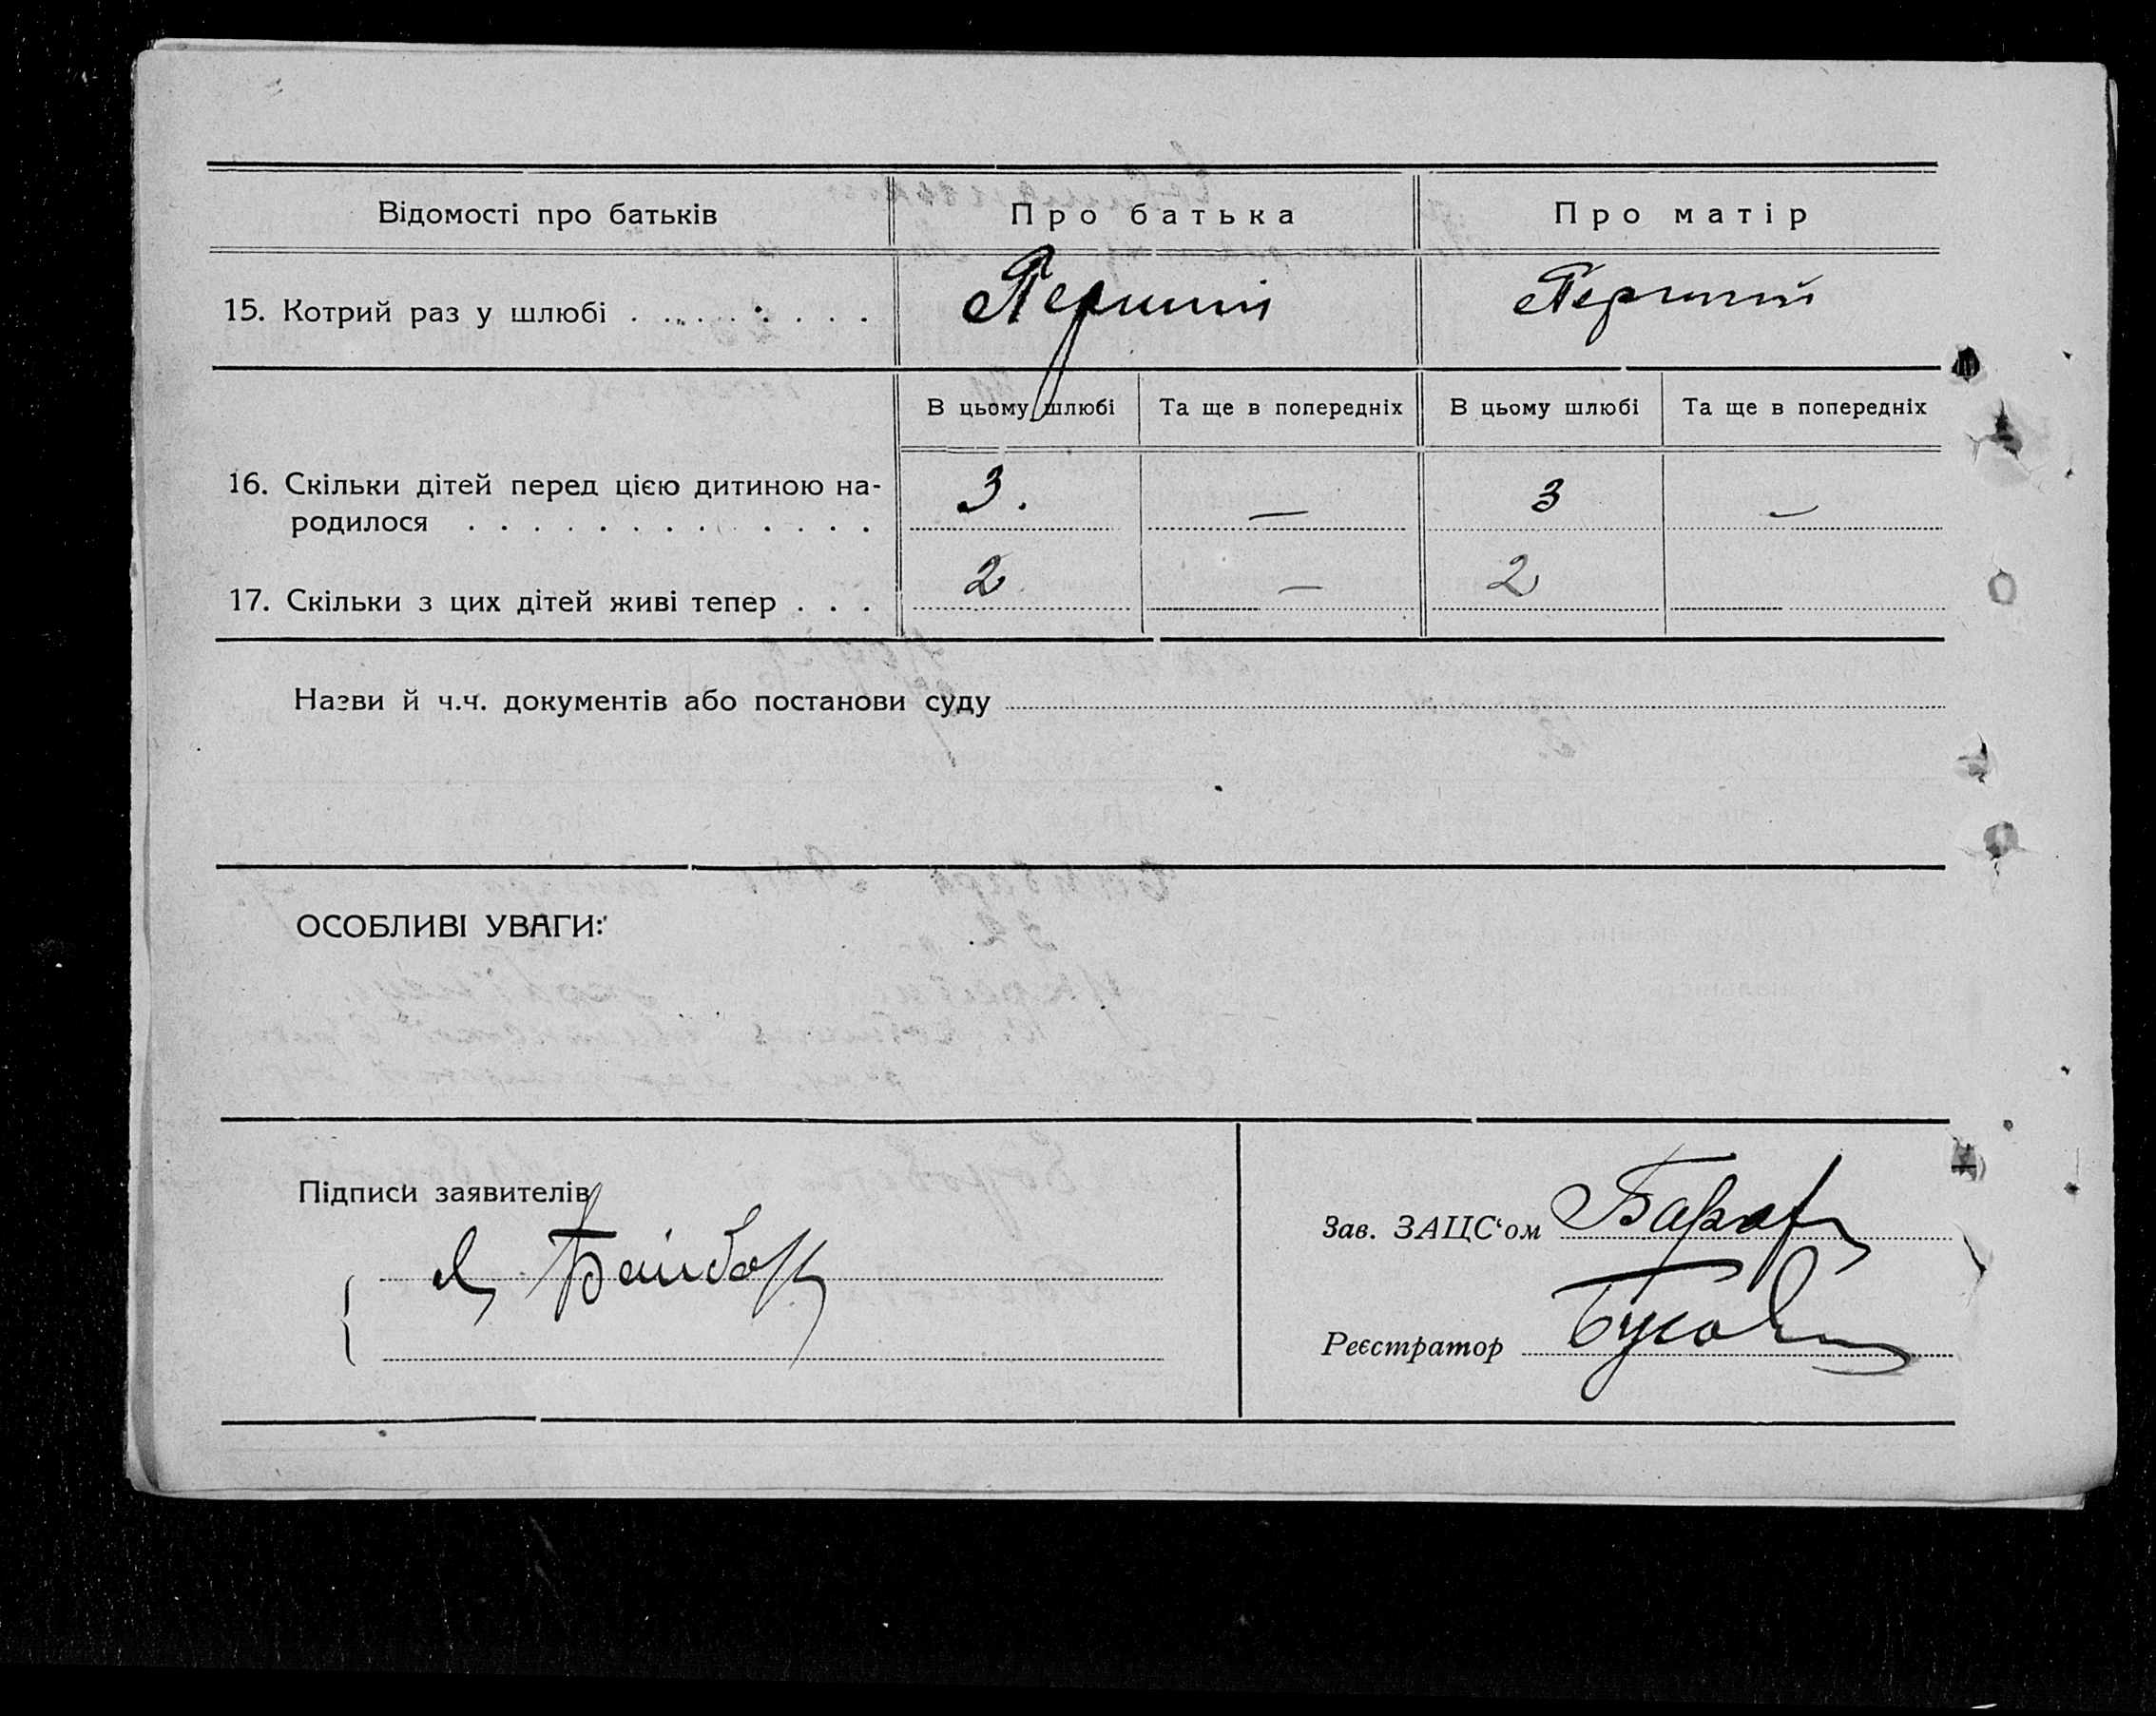 Відомості про батьків
Про батька
Про матір
15. Котрий раз у шлюбі . . . . . . . .
Перший
Перший
В цьому шлюбі
Та ще в попередніх
В цьому шлюбі
Та ще в попередніх
16. Скільки дітей перед цією дитиною на-
родилося . . . . . . . . . . . . .
3.
—
3
—
17. Скільки з цих дітей живі тепер . . .
2
—
2
Назви й ч.ч. документів або постанови суду
ОСОБЛИВІ УВАГИ:
Підписи заявителів
Зав. ЗАЦС‘ом
Реєстратор